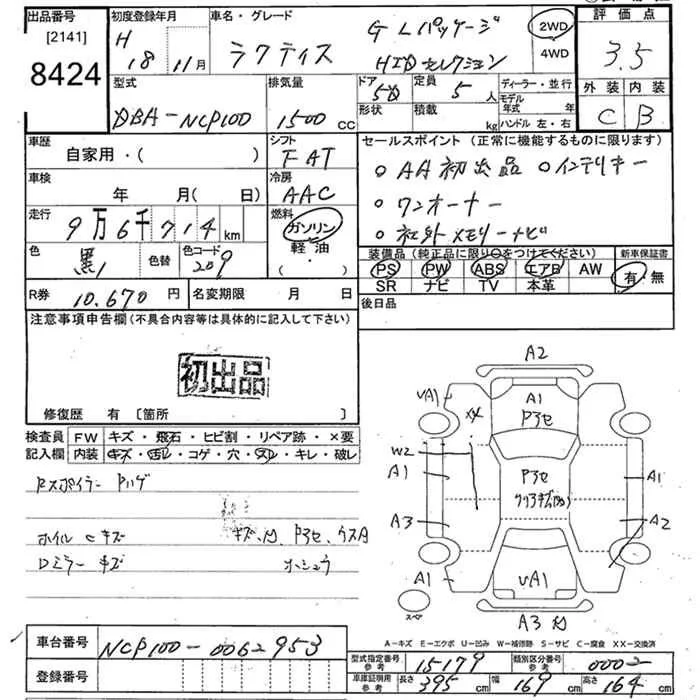 出品番号 初度登録年月 車名・グレード 評価点
[2141] H 18 11月 ラクティス G Lパッケージ 2WD
8424 HIDセレクション 4WD 3.5
型式 排気量 ドア 定員 ディーラー・並行 外装 内装
DBA-NCP100 1500CC 5D 5人 モデル年式 年 C B
形状 積載 kg ハンドル 左・右
車歴 シフト セールスポイント (正常に機能するものに限ります)
自家用・( ) FAT ○AA初出品 ○インテリキー
車検 冷房
年 月( 日) AAC ○ワンオーナー
走行 燃料
9万6千714km ガソリン ○社外メモリーナビ
色 色替 色コード 軽油・ 装備品(純正品に限り○をつけてください) 新車保証書
黒 209 ( ) PS PW ABS エアB AW 有・無
SR ナビ TV 本革
R券 10.670円 名変期限 月 日 後日品
注意事項申告欄(不具合内容等は具体的に記入して下さい)
初出品
修復歴 有 [箇所 ]
検査員 FW キズ・飛石・ヒビ割・リペア跡・×要
記入欄 内装 キズ・汚レ・コゲ・穴・スレ・キレ・破レ
Rスポイラー Pハゲ
ホイルCキズ
Dミラーキズ
A2
UA1
A1
Pヌセ
XX
W2
A1
A1
A3
A2
A1
UA1
スペア
A3
A-キズ E-エクボ U-凹み W-補修跡 S-サビ C-腐食 XX-交換済
車台番号 NCP100-0062953
型式指定番号 参考 15179 類別区分番号 参考 0002
登録番号
車庫証明用 参考 長さ 395cm 幅 169cm 高さ 164cm